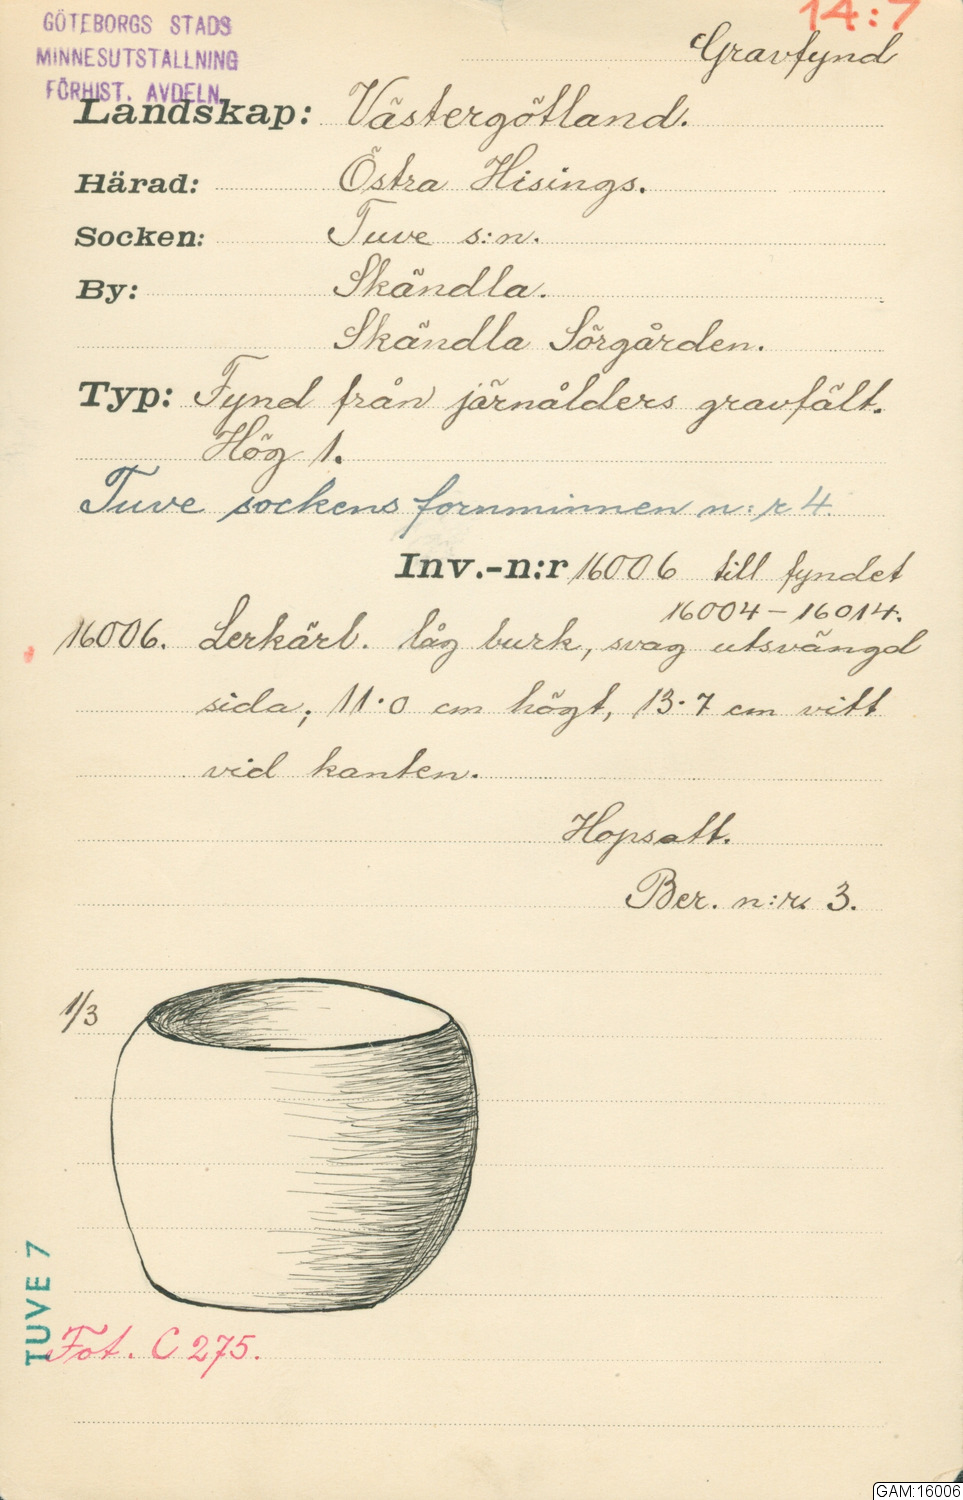 GÖTEBORGS STADS
MINNESUTSTALLNING
FÖRHIST. AVDELN.
14:7
Gravfynd
Landskap: Västergötland.
Härad: Östra Hisings.
Socken: Tuve s:n.
By: Skändla.
Skändla Sörgården.
Typ: Fynd från järnålders gravfält.
Hög 1.
Tuve sockens fornminnen n:r 4.
Inv.-n:r 16006 till fyndet
16004–16014.
16006. Lerkärl. låg burk, svag utsvängd
sida; 11·0 cm högt, 13·7 cm vitt
vid kanten.
Hopsatt.
Ber. n:r. 3.
1/3
TUVE 7
Fot. C 275.
GAM:16006